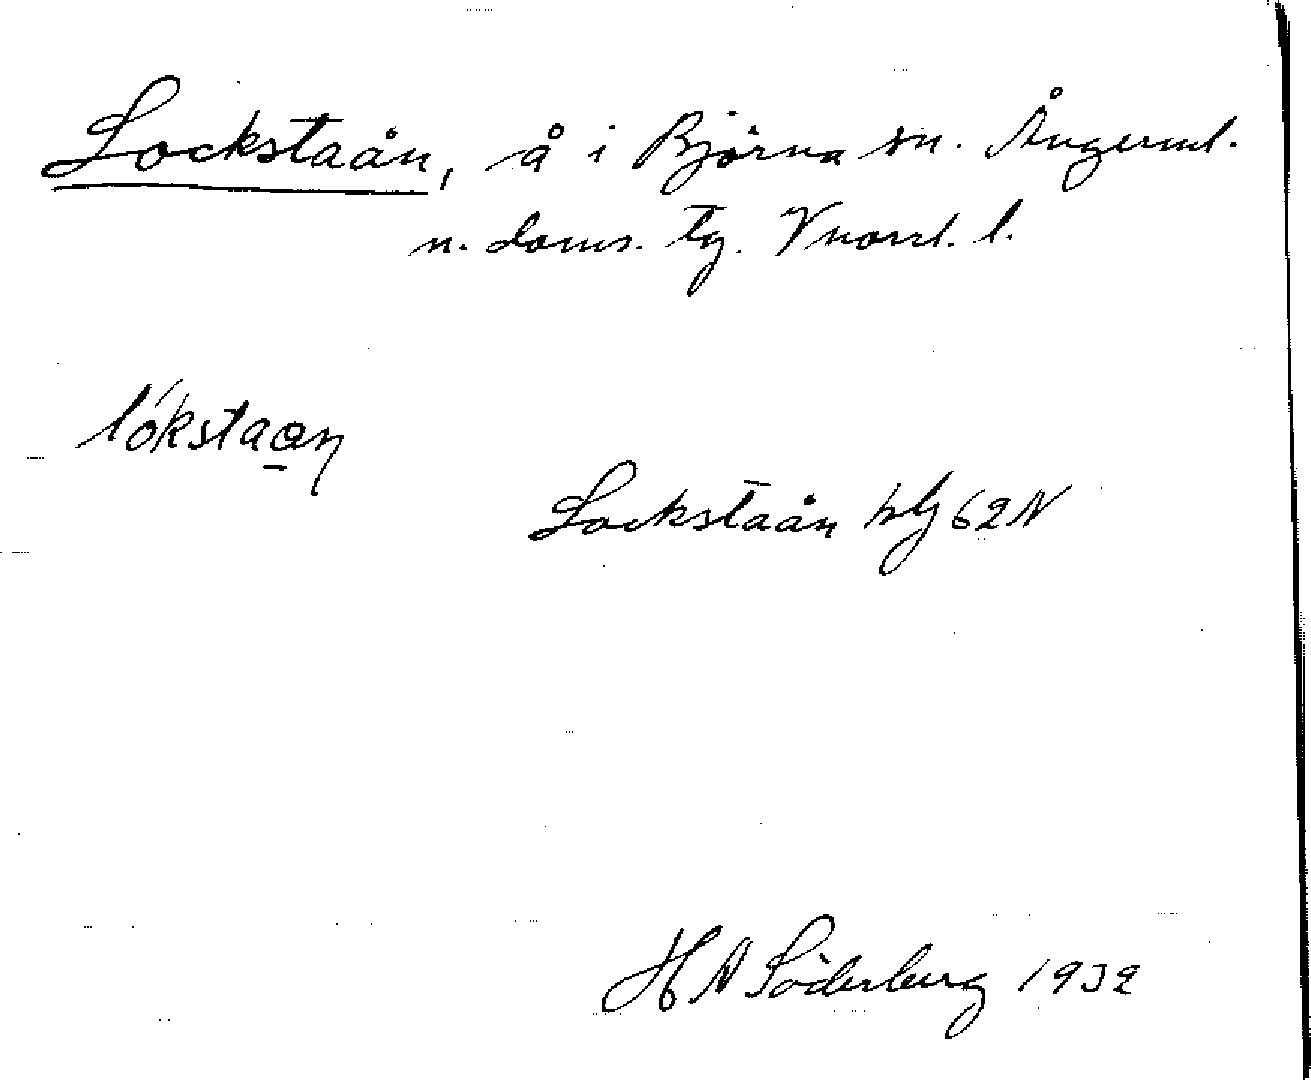 Lockstaån, å i Björna sn. Ångerml.
n. doms. tg. Vnorrl. l.
lókstaon
Lockstaån blg 62 N
H A Söderberg 1932